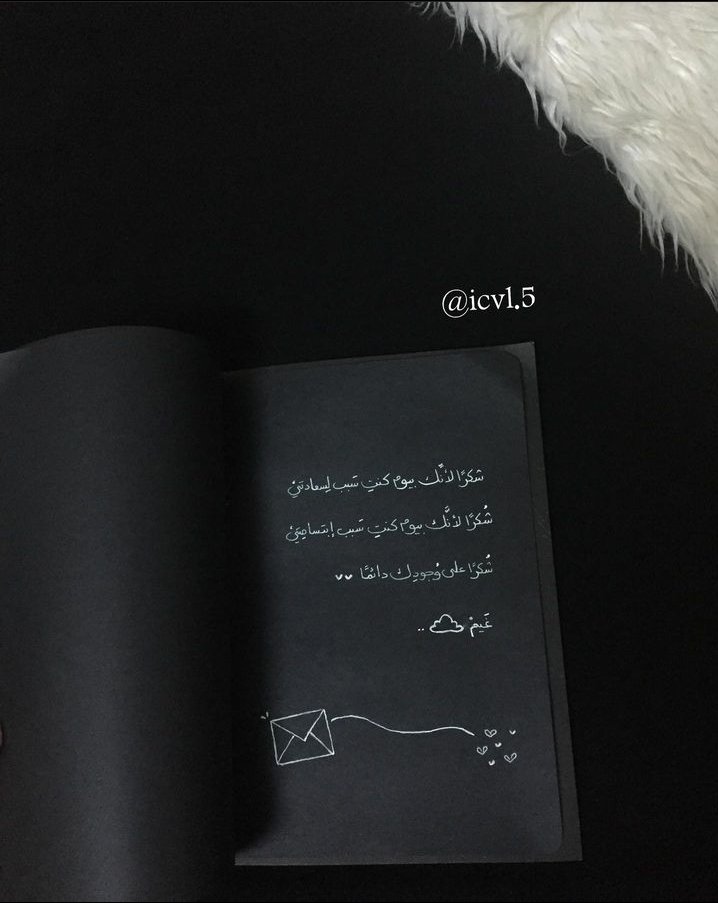 @icvl.5
شكرًا لأنَّك بيوم كنتِ سَبب لِسعادتيّ
شُكرًا لأنَّك بيوم كنتِ سَبب إبتسامتيّ
شُكرًا على وُجودِك دائمًا
غَيمْ ..